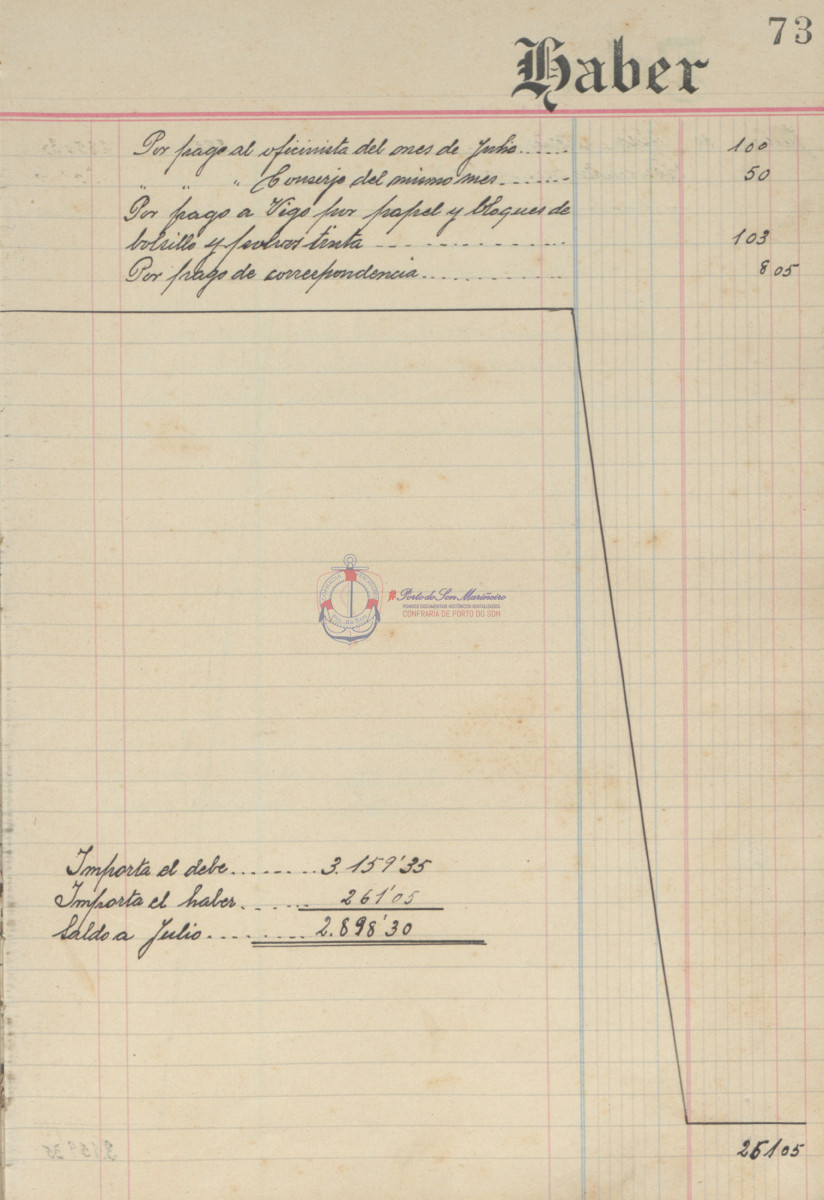 73
Haber
Por pago al oficinista del mes de Junio...... 100
" " " Conserje del mismo mes....... 50
Por pago a Vigo por papel y bloques de
bolsillo y polvos tinta ............ 103
Por pago de correspondencia........... 8 05
Porto do Son Mariñeiro
FONDOS DOCUMENTAIS HISTÓRICOS DIXITALIZADOS
CONFRARÍA DE PORTO DO SON
Importa el debe........ 3.159'35
Importa el haber....... 261'05
Saldo a Julio......... 2.898'30
261 05